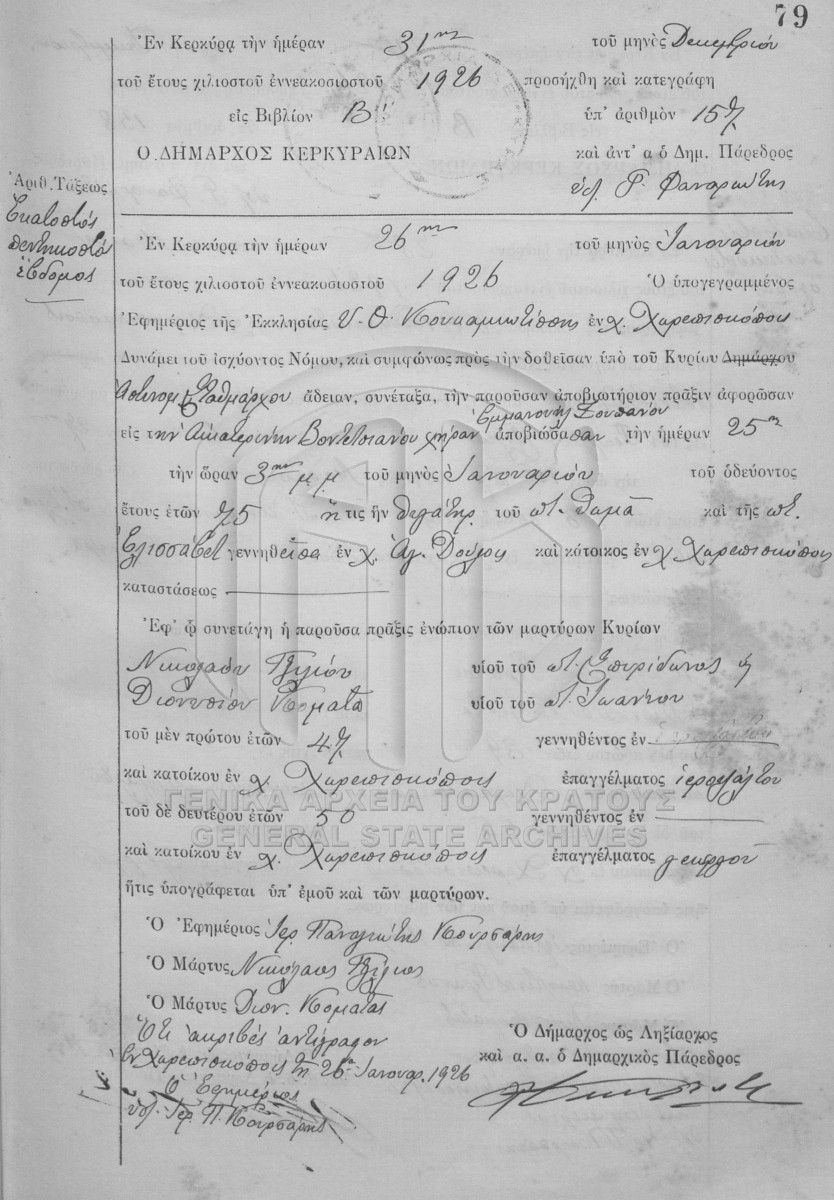 79
Ἐν Κερκύρᾳ τὴν ἡμέραν 31ην τοῦ μηνὸς Δεκεμβρίου
τοῦ ἔτους χιλιοστοῦ ἐννεακοσιοστοῦ 1926 προσήχθη καὶ κατεγράφη
εἰς Βιβλίον Β''' ὑπ' ἀριθμὸν 157
Ο ΔΗΜΑΡΧΟΣ ΚΕΡΚΥΡΑΙΩΝ καὶ ἀντ' α ὁ Δημ. Πάρεδρος
Ἀριθ. Τάξεως
ὑπ. Φαναριώτης
Ἑκατοστός
πεντηκοστός
ἕβδομος
Ἐν Κερκύρᾳ τὴν ἡμέραν 26ην τοῦ μηνὸς Ἰανουαρίου
τοῦ ἔτους χιλιοστοῦ ἐννεακοσιοστοῦ 1926 Ὁ ὑπογεγραμμένος
Ἐφημέριος τῆς Ἐκκλησίας Υ. Θ. ἐν χ. Χωρεπισκόπους
Δυνάμει τοῦ ἰσχύοντος Νόμου, καὶ συμφώνως πρὸς τὴν δοθεῖσαν ὑπὸ τοῦ Κυρίου Δημάρχου
Ἀστυνομ. Σταθμάρχου ἄδειαν, συνέταξα, τὴν παροῦσαν ἀποβιωτήριον πρᾶξιν ἀφορῶσαν
Ἐμμανουὴλ
εἰς την Αἰκατερίνην Βοντετσιάνου χήραν ἀποβιώσασαν τὴν ἡμέραν 25η
τὴν ὥραν 3ην μ μ τοῦ μηνὸς Ἰανουαρίου τοῦ ὁδεύοντος
ἔτους ἐτῶν 75 ἥτις ἦν θυγάτηρ τοῦ ποτ. Θωμᾶ καὶ τῆς ποτ.
Ἐλισσάβετ γεννηθεῖσα ἐν χ. Ἁγ. Δούλους καὶ κάτοικος ἐν χ Χωρεπισκόπους
καταστάσεως
Ἐφ' ᾧ συνετάγη ἡ παροῦσα πρᾶξις ἐνώπιον τῶν μαρτύρων Κυρίων
Νικολάου υἱοῦ τοῦ ποτ. Σπυρίδωνος ἢ
Διονυσίου Κομάτα υἱοῦ τοῦ ποτ. Ἰωάννου
τοῦ μὲν πρώτου ἐτῶν 47 γεννηθέντος ἐν
καὶ κατοίκου ἐν χ. Χωρεπισκόπους ἐπαγγέλματος ἱεροψάλτου
ΓΕΝΙΚΑ ΑΡΧΕΙΑ ΤΟΥ ΚΡΑΤΟΥΣ
τοῦ δὲ δευτέρου ἐτῶν 50 γεννηθέντος ἐν
GENERAL STATE ARCHIVES
καὶ κατοίκου ἐν χ. Χωρεπισκόπους ἐπαγγέλματος γεωργοῦ
ἥτις ὑπογράφεται ὑπ' ἐμοῦ καὶ τῶν μαρτύρων.
Ὁ Ἐφημέριος Ἱερ. Παναγιώτης Κουρσάρης
Ὁ Μάρτυς Νικόλαος
Ὁ Μάρτυς Διον. Κομάτας
Ὅτι ἀκριβὲς ἀντίγραφον
Ἐν Χωρεπισκόποις τῇ 26η Ἰανουαρ. 1926
Ὁ Ἐφημέριος
ὑπ. Ἱερ. Π. Κουρσάρης
Ὁ Δήμαρχος ὡς Ληξίαρχος
καὶ α. α. ὁ Δημαρχικὸς Πάρεδρος